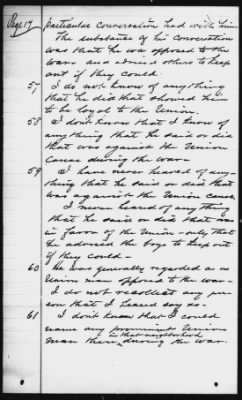 Page 17
particular conversation had with him
The substance of his conversation
was that he was opposed to the
war and advised others to keep
out if they could.
57 I do not know of anything
that he did that showed him
to be loyal to the Union.
58 I don't know that I know of
anything that he said or did
that was against the Union
cause during the war.
59 I have never heard of any-
thing that he said or did that
was against the Union cause.
I never heard of anything
that he said or did that was
in favor of the Union - only that
he advised the boys to keep out
if they could -
60 He was generally regarded as a
Union man opposed to the war -
I do not recollect any per-
son that I heard say so -
61 I don't know that I could
name any prominent Union
in that neighborhood
man there during the war.